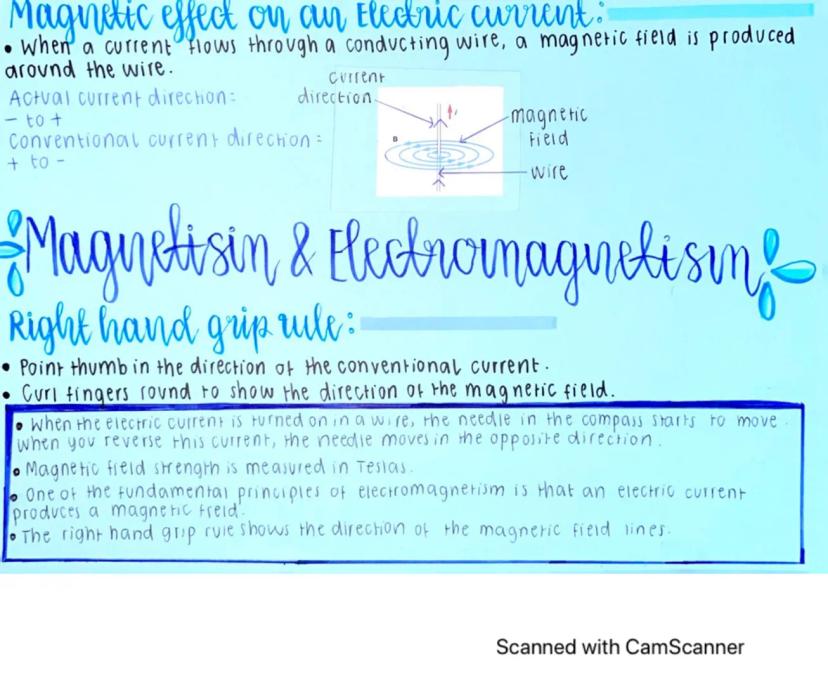 Magnetic effect on an Electric current:
• When a current flows through a conducting wire, a magnetic field is produced
around the wire.
Actual current direction:
- to +
Conventional current direction:
+ to -
current
direction
I
magnetic
field
B
wire
Magnetism & Electromagnetism
Right hand grip rule:
• Point thumb in the direction of the conventional current.
• Curl fingers round to show the direction of the magnetic field.
• When the electric current is turned on in a wire, the needle in the compass starts to move.
When you reverse this current, the needle moves in the opposite direction.
• Magnetic field strength is measured in Teslas.
• One of the fundamental principles of electromagnetism is that an electric current
produces a magnetic field.
• The right hand grip rule shows the direction of the magnetic field lines.
Scanned with CamScanner